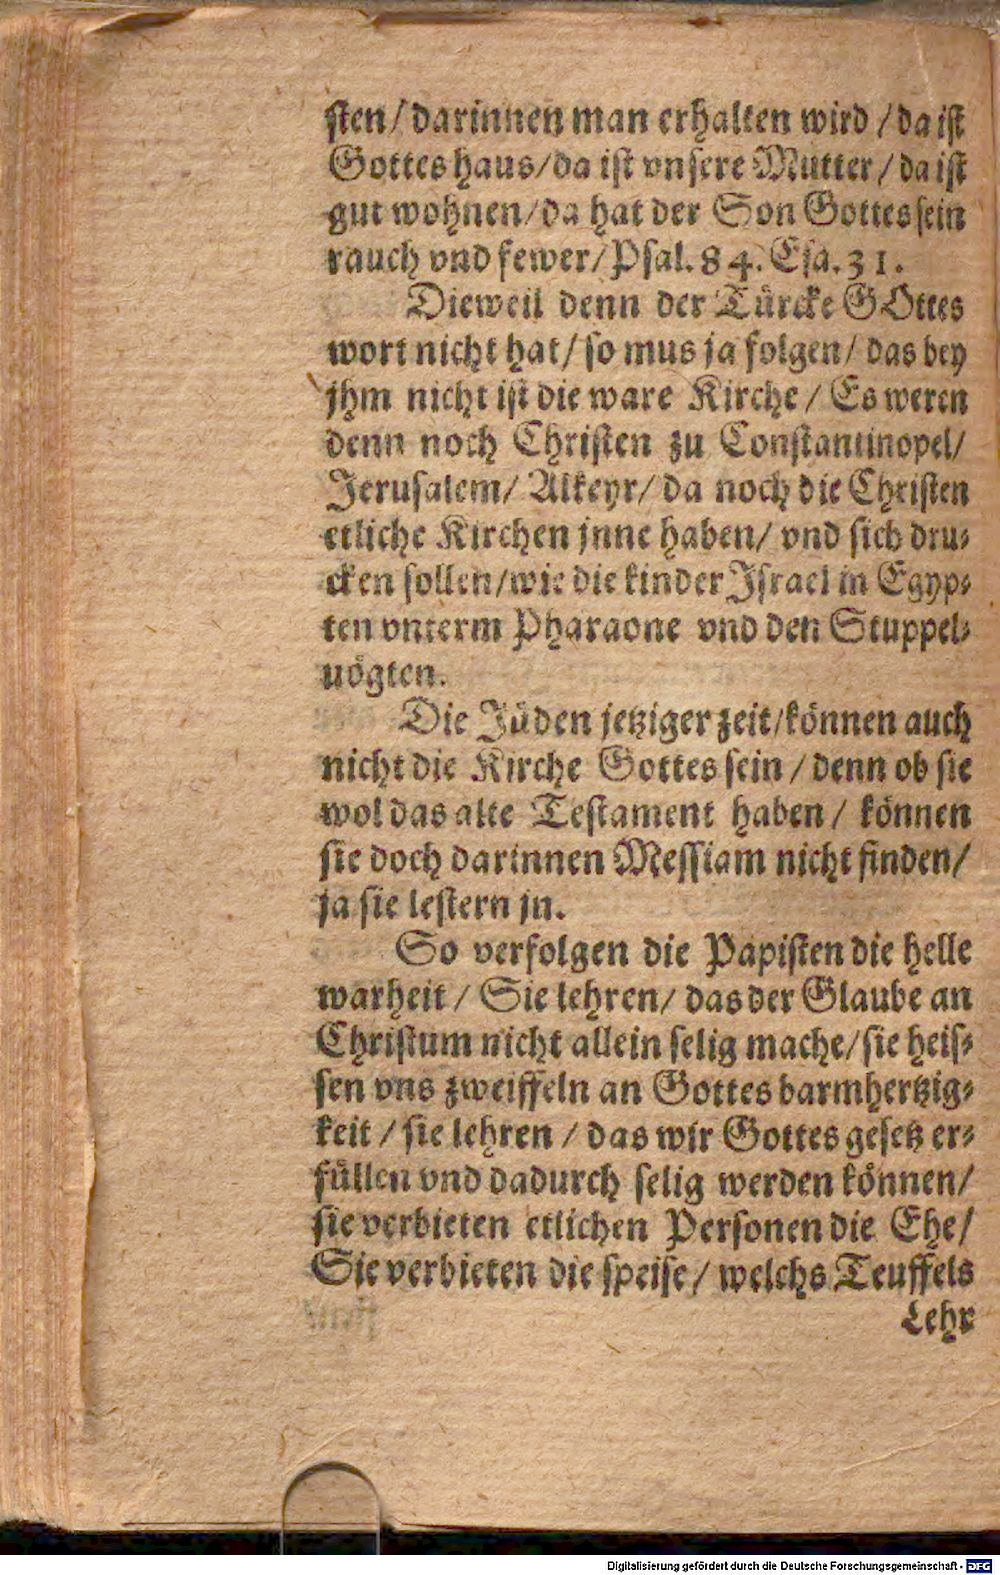 ſten/ darinnen man erhalten wird / da iſt
Gottes haus/da iſt vnſere Mutter / da iſt
gut wohnen/da hat der Son Gottes ſein
rauch vnd fewer/ Pſal. 84. Eſa. 31.
Dieweil denn der Türcke GOttes
wort nicht hat/ ſo mus ja folgen/ das bey
jhm nicht iſt die ware Kirche / Es weren
denn noch Chriſten zu Conſtantinopel/
Jeruſalem/ Alkeyr/ da noch die Chriſten
etliche Kirchen jnne haben/ vnd ſich dru⸗
cken ſollen/wie die kinder Iſrael in Egyp⸗
ten vnterm Pharaone vnd den Stuppel⸗
uögten.
Die Jüden jetziger zeit/können auch
nicht die Kirche Gottes ſein / denn ob ſie
wol das alte Teſtament haben / können
ſie doch darinnen Meſſiam nicht finden/
ja ſie leſtern jn.
So verfolgen die Papiſten die helle
warheit / Sie lehren/ das der Glaube an
Chriſtum nicht allein ſelig mache/ſie heiſ⸗
ſen vns zweiffeln an Gottes barmhertzig⸗
keit / ſie lehren / das wir Gottes geſetz er⸗
füllen vnd dadurch ſelig werden können/
ſie verbieten etlichen Perſonen die Ehe/
Sie verbieten die ſpeiſe/ welchs Teuffels
Lehr
Digitalisierung gefördert durch die Deutsche Forschungsgemeinschaft - DFG